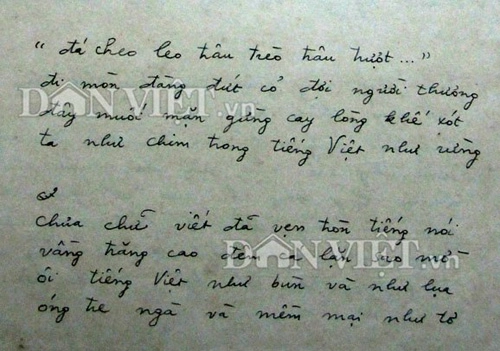 “đá cheo leo trâu trèo trâu trượt...”
đi mòn đàng đứt cỏ đợi người thương
đây muối mặn gừng cay lòng khế xót
ta như chim trong tiếng Việt như rừng
chưa chữ viết đã vẹn tròn tiếng nói
vầng trăng cao đêm cá lặn sao mờ
ôi tiếng Việt như bùn và như lụa
óng tre ngà và mềm mại như tơ
DÂNVIỆT.vn
DÂNVIỆT.vn